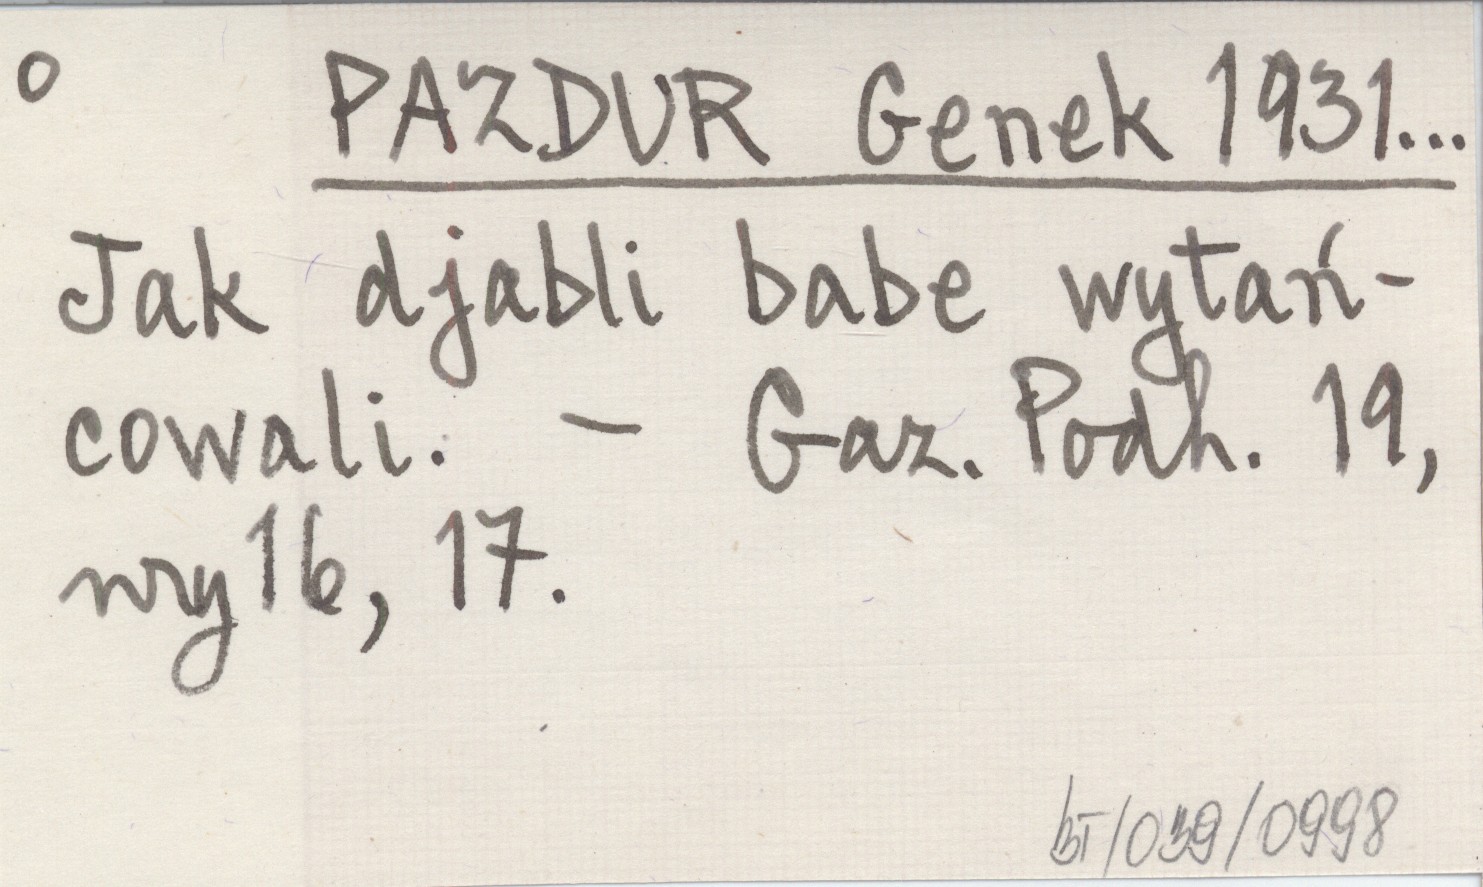 o PAZDUR Genek 1931...
Jak djabli babe wytań-
cowali. - Gaz. Podh. 19,
nry 16, 17.
BT/039/0998